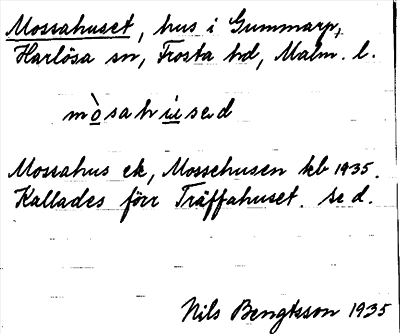 Mossahuset, hus i Gummarp,
Harlösa sn, Frosta hd, Malm. l.
mòsahuised
Mossahus ek, Mossehusen kb 1935.
Kallades förr Träffahuset. se d.
Nils Bengtsson 1935